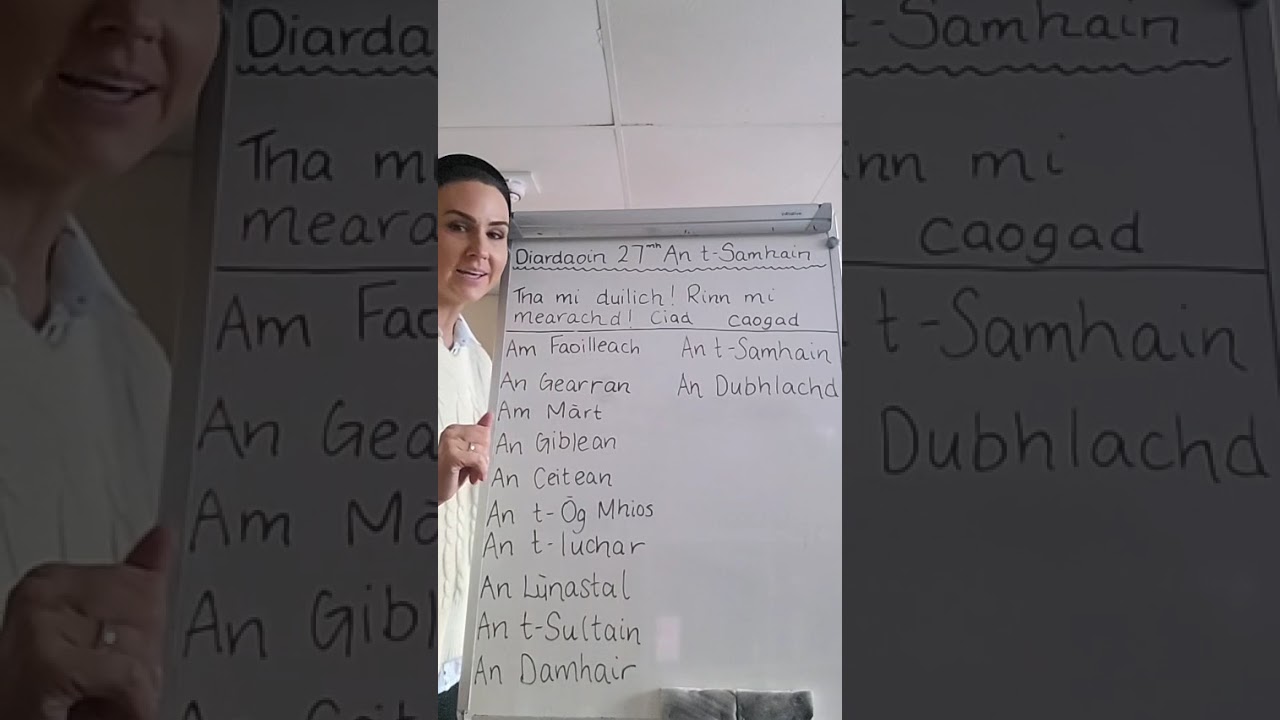 Diardaoin 27mh An t-Samhain
Tha mi duilich! Rinn mi
mearachd! Ciad caogad
Am Faoilleach
An Gearran
Am Màrt
An Giblean
An Ceitean
An t-Òg Mhios
An t-Iuchar
An Lùnastal
An t-Sultain
An Damhair
An t-Samhain
An Dubhlachd